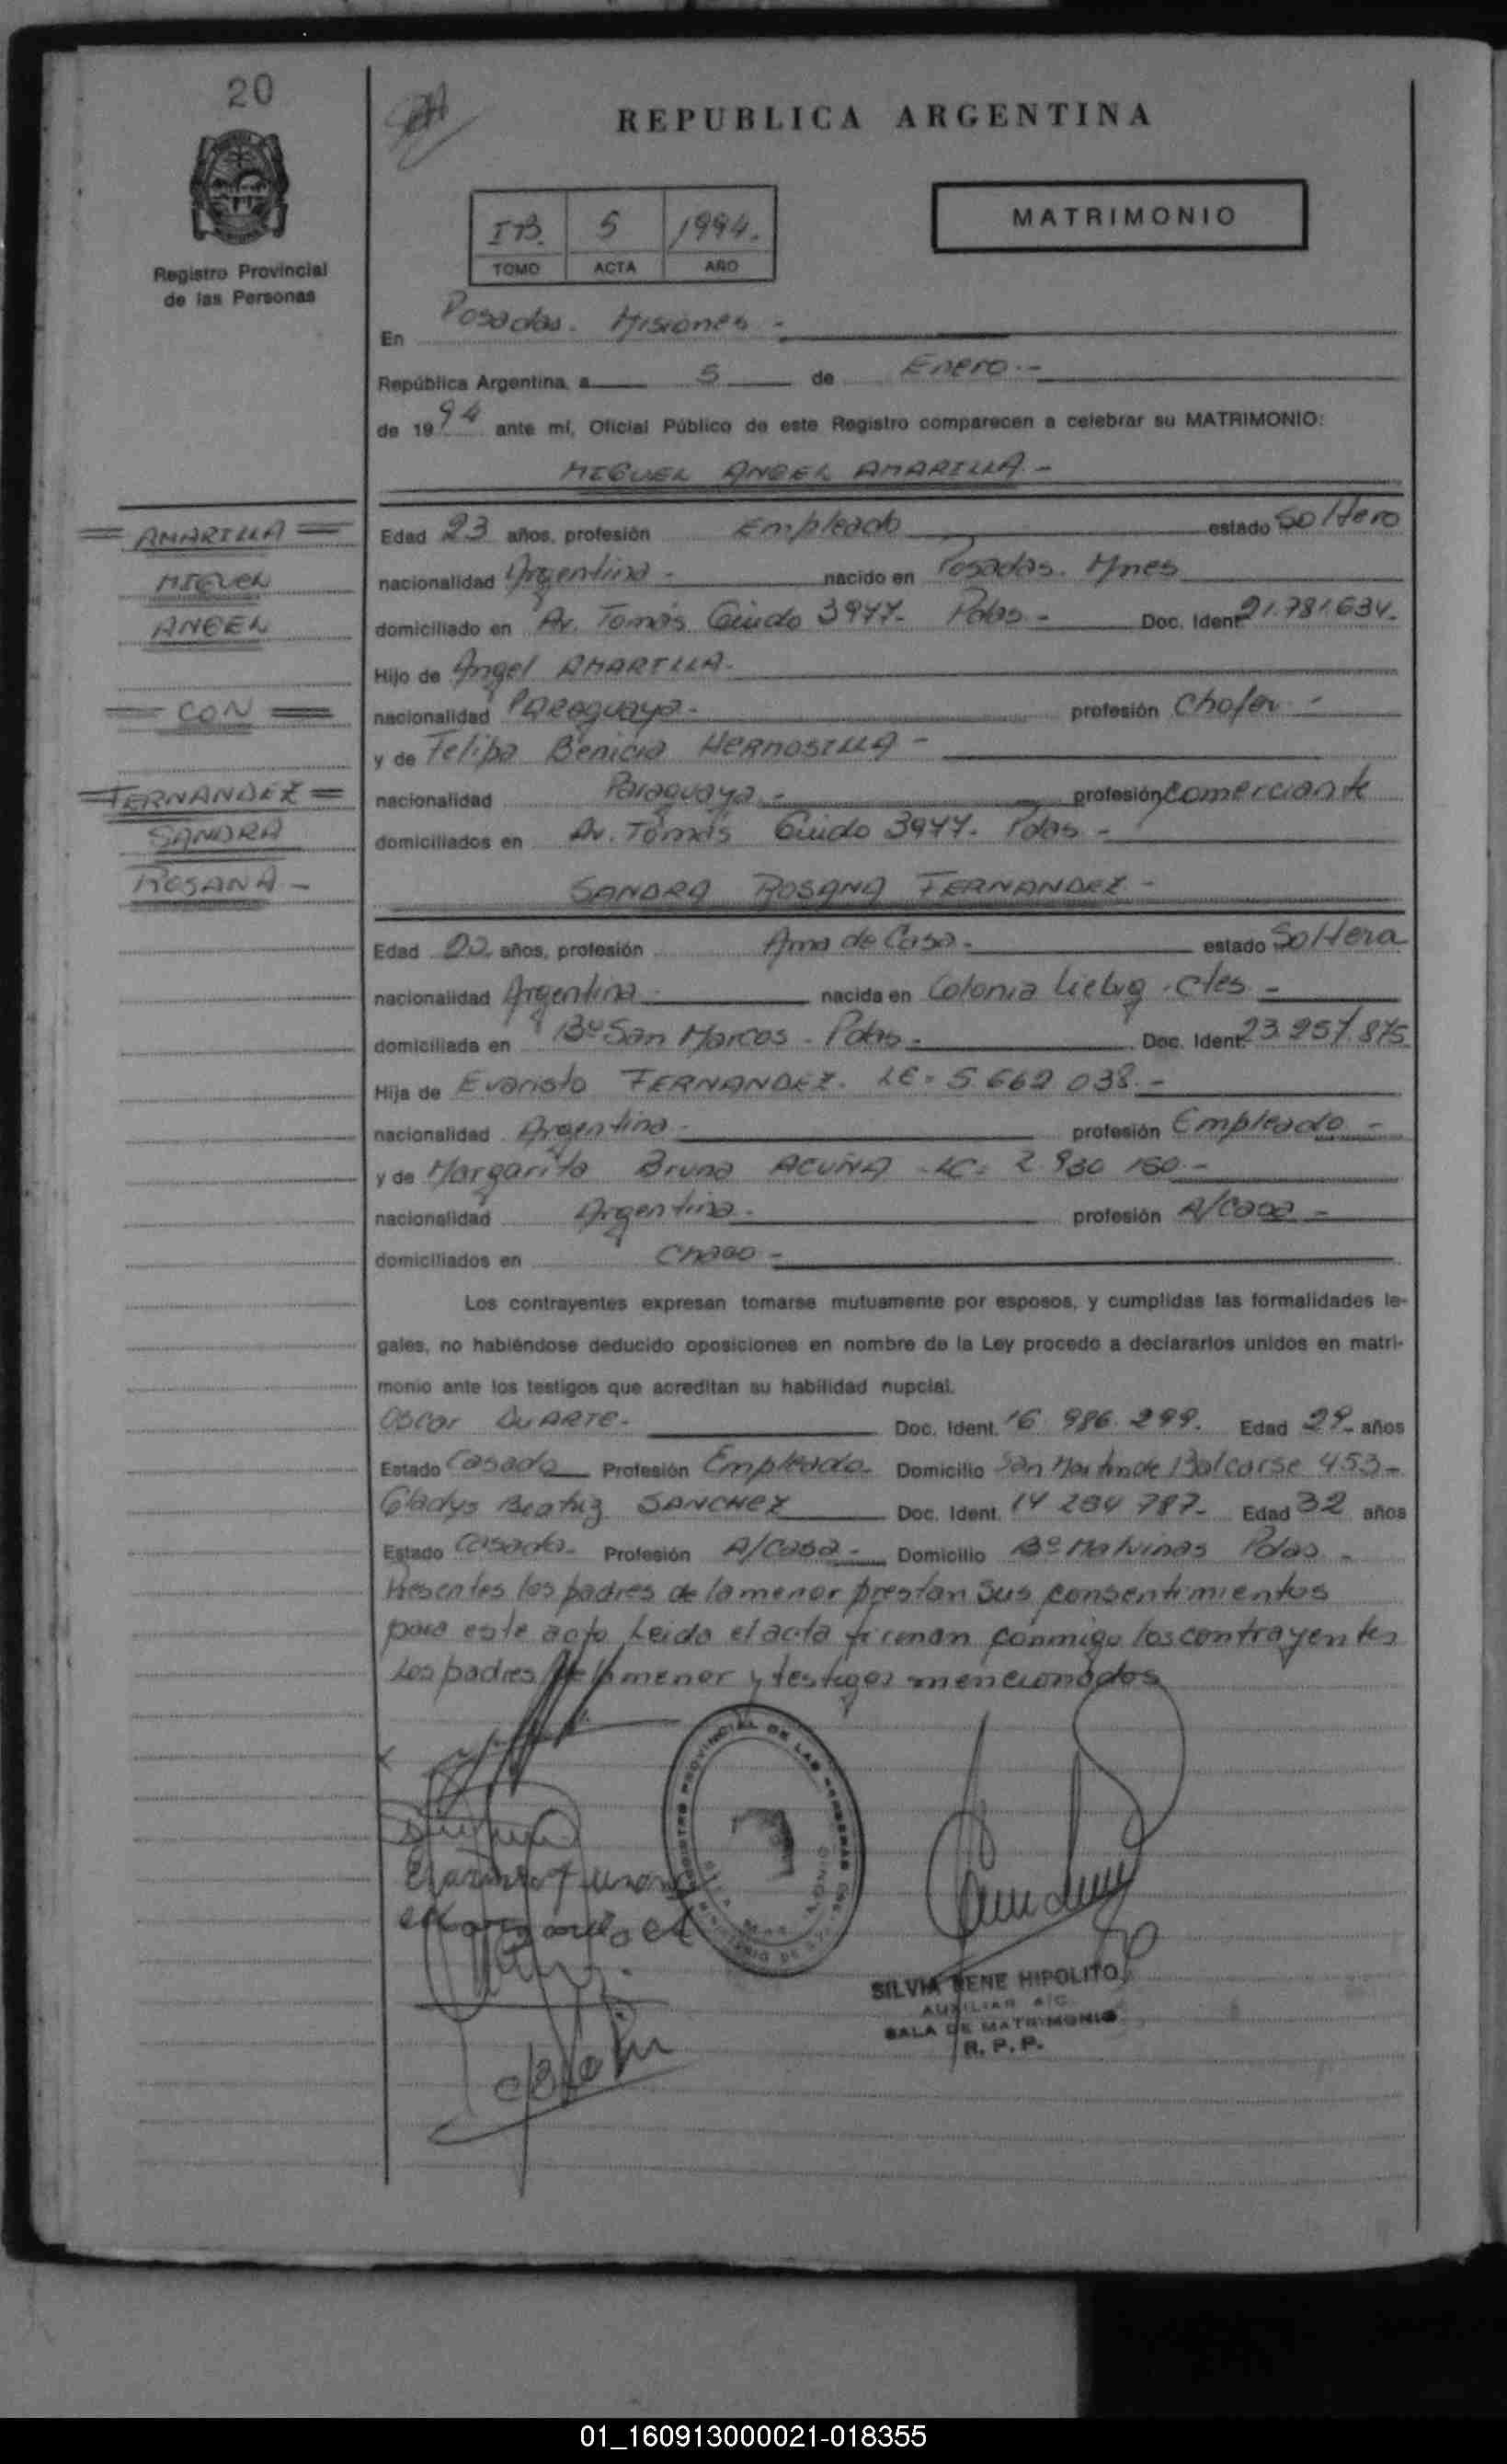 20
REPUBLICA ARGENTINA
Registro Provincial
de las Personas
5 1994.
TOMO ACTA AÑO
MATRIMONIO
En Posadas. Misiones -
República Argentina, a 5 de Enero.-
de 1994 ante mí, Oficial Público de este Registro comparecen a celebrar su MATRIMONIO:
MIGUEL ANGEL AMARILLA.-
= AMARILLA =
MIGUEL
ANGEL
= CON =
= FERNANDEZ =
SANDRA
ROSANA -
Edad 23 años, profesión Empleado estado Soltero
nacionalidad Argentina - nacido en Posadas. Mnes
domiciliado en Av. Tomás Guido 3977. Pdas - Doc. Ident. 21.781.634.
Hijo de Angel AMARILLA.
nacionalidad Paraguaya - profesión Chofer -
y de Felipa Benicia HERMOSILLA -
nacionalidad Paraguaya - profesión Comerciante
domiciliados en Av. Tomás Guido 3977. Pdas -
SANDRA ROSANA FERNANDEZ -
Edad años, profesión Ama de Casa - estado Soltera
nacionalidad Argentina - nacida en Colonia Liebig - Ctes -
domiciliada en Bº San Marcos - Pdas - Doc. Ident. 23.257.875
Hija de Evaristo FERNANDEZ. LE = 5.662.038.-
nacionalidad Argentina - profesión Empleado -
y de Margarita Bruna ACUÑA - LC = 2.930.150.-
nacionalidad Argentina - profesión A/Casa -
domiciliados en Chaco -
Los contrayentes expresan tomarse mutuamente por esposos, y cumplidas las formalidades le-
gales, no habiéndose deducido oposiciones en nombre de la Ley procedo a declararlos unidos en matri-
monio ante los testigos que acreditan su habilidad nupcial.
Oscar DUARTE. Doc. Ident. 16.986.299. Edad 29 años
Estado Casado Profesión Empleado. Domicilio San Martin de Balcarse 453-
Gladys Beatriz SANCHEZ Doc. Ident. 14 254 787. Edad 32 años
Estado Casada. Profesión A/Casa - Domicilio Bº Malvinas Pdas -
Presentes los padres de la menor prestan sus consentimientos
para este acto Leida el acta firman conmigo los contrayentes
Los padres de la menor y testigos mencionados
REGISTRO PROVINCIAL DE LAS PERSONAS
SILVIA IRENE HIPOLITO
AUXILIAR A/C
SALA DE MATRIMONIO
R. P. P.
01_160913000021-018355